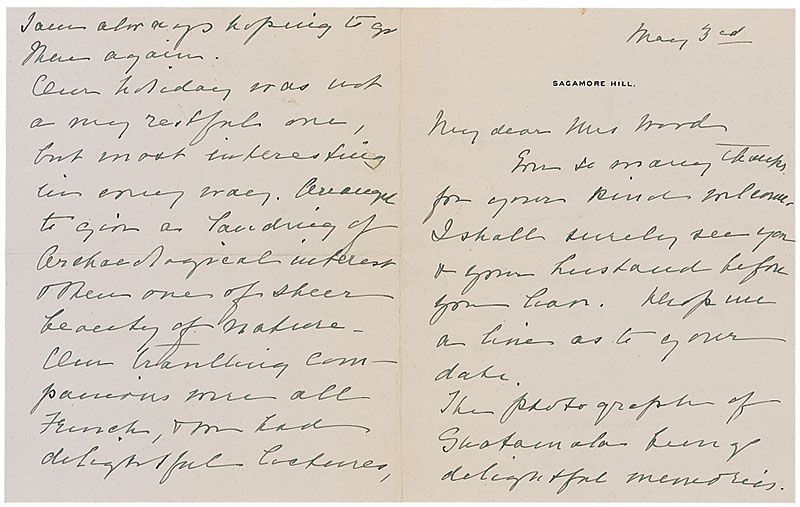 May 3rd
SAGAMORE HILL.
My dear Mrs Ward
Ever so many thanks
for your kind welcome.
I shall surely see you
& your husband before
you leave. Drop me
a line as to your
date.
The photograph of
Guatamala brings
delightful memories.
I am always hoping to go
there again.
Our holiday was not
a very restful one,
but most interesting
in every way. Arranged
to give a landing of
Archaeological interest
& then one of sheer
beauty of nature –
Our travelling com–
panions were all
French, & we had
delightful lectures,